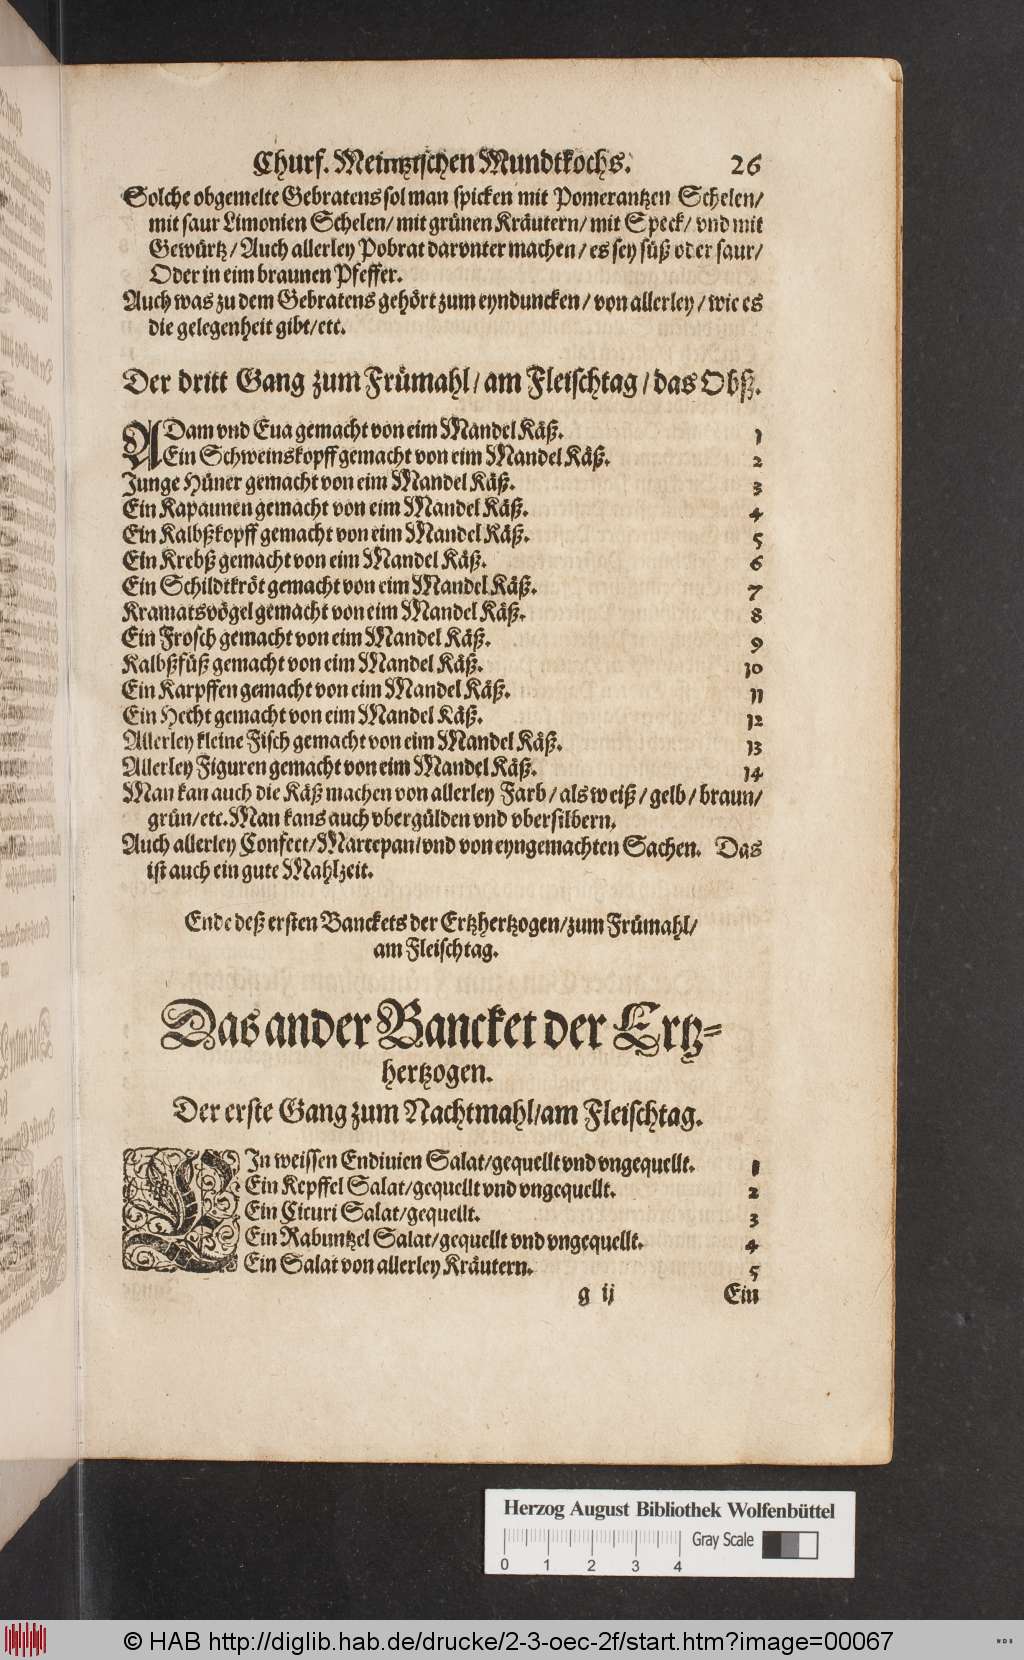 Churf. Meintzischen Mundtkochs. 26
Solche obgemelte Gebratens sol man spicken mit Pomerantzen Schelen/
mit saur Limonien Schelen/ mit grünen Kräutern/ mit Speck/ vnd mit
Gewürtz/ Auch allerley Pobrat darvnter machen/ es sey süß oder saur/
Oder in eim braunen Pfeffer.
Auch was zu dem Gebratens gehört zum eynduncken/ von allerley/ wie es
die gelegenheit gibt/ etc.
Der dritt Gang zum Frümahl/ am Fleischtag/ das Obß.
ADam vnd Eua gemacht von eim Mandel Käß. 1
Ein Schweinskopff gemacht von eim Mandel Käß. 2
Junge Hüner gemacht von eim Mandel Käß. 3
Ein Kapaunen gemacht von eim Mandel Käß. 4
Ein Kalbßkopff gemacht von eim Mandel Käß. 5
Ein Krebß gemacht von eim Mandel Käß. 6
Ein Schildtkröt gemacht von eim Mandel Käß. 7
Kramatsvögel gemacht von eim Mandel Käß. 8
Ein Frosch gemacht von eim Mandel Käß. 9
Kalbßfüß gemacht von eim Mandel Käß. 10
Ein Karpffen gemacht von eim Mandel Käß. 11
Ein Hecht gemacht von eim Mandel Käß. 12
Allerley kleine Fisch gemacht von eim Mandel Käß. 13
Allerley Figuren gemacht von eim Mandel Käß. 14
Man kan auch die Käß machen von allerley Farb/ als weiß/ gelb/ braun/
grün/ etc. Man kans auch vbergülden vnd vbersilbern.
Auch allerley Confect/ Martepan/ vnd von eyngemachten Sachen. Das
ist auch ein gute Mahlzeit.
Ende deß ersten Banckets der Ertzhertzogen/ zum Frümahl/
am Fleischtag.
Das ander Bancket der Ertz-
hertzogen.
Der erste Gang zum Nachtmahl/ am Fleischtag.
EIn weissen Endiuien Salat/ gequellt vnd vngequellt. 1
Ein Kepffel Salat/ gequellt vnd vngequellt. 2
Ein Cicuri Salat/ gequellt. 3
Ein Rabuntzel Salat/ gequellt vnd vngequellt. 4
Ein Salat von allerley Kräutern. 5
g ij Ein
Herzog August Bibliothek Wolfenbüttel
0 1 2 3 4 Gray Scale
© HAB http://diglib.hab.de/drucke/2-3-oec-2f/start.htm?image=00067